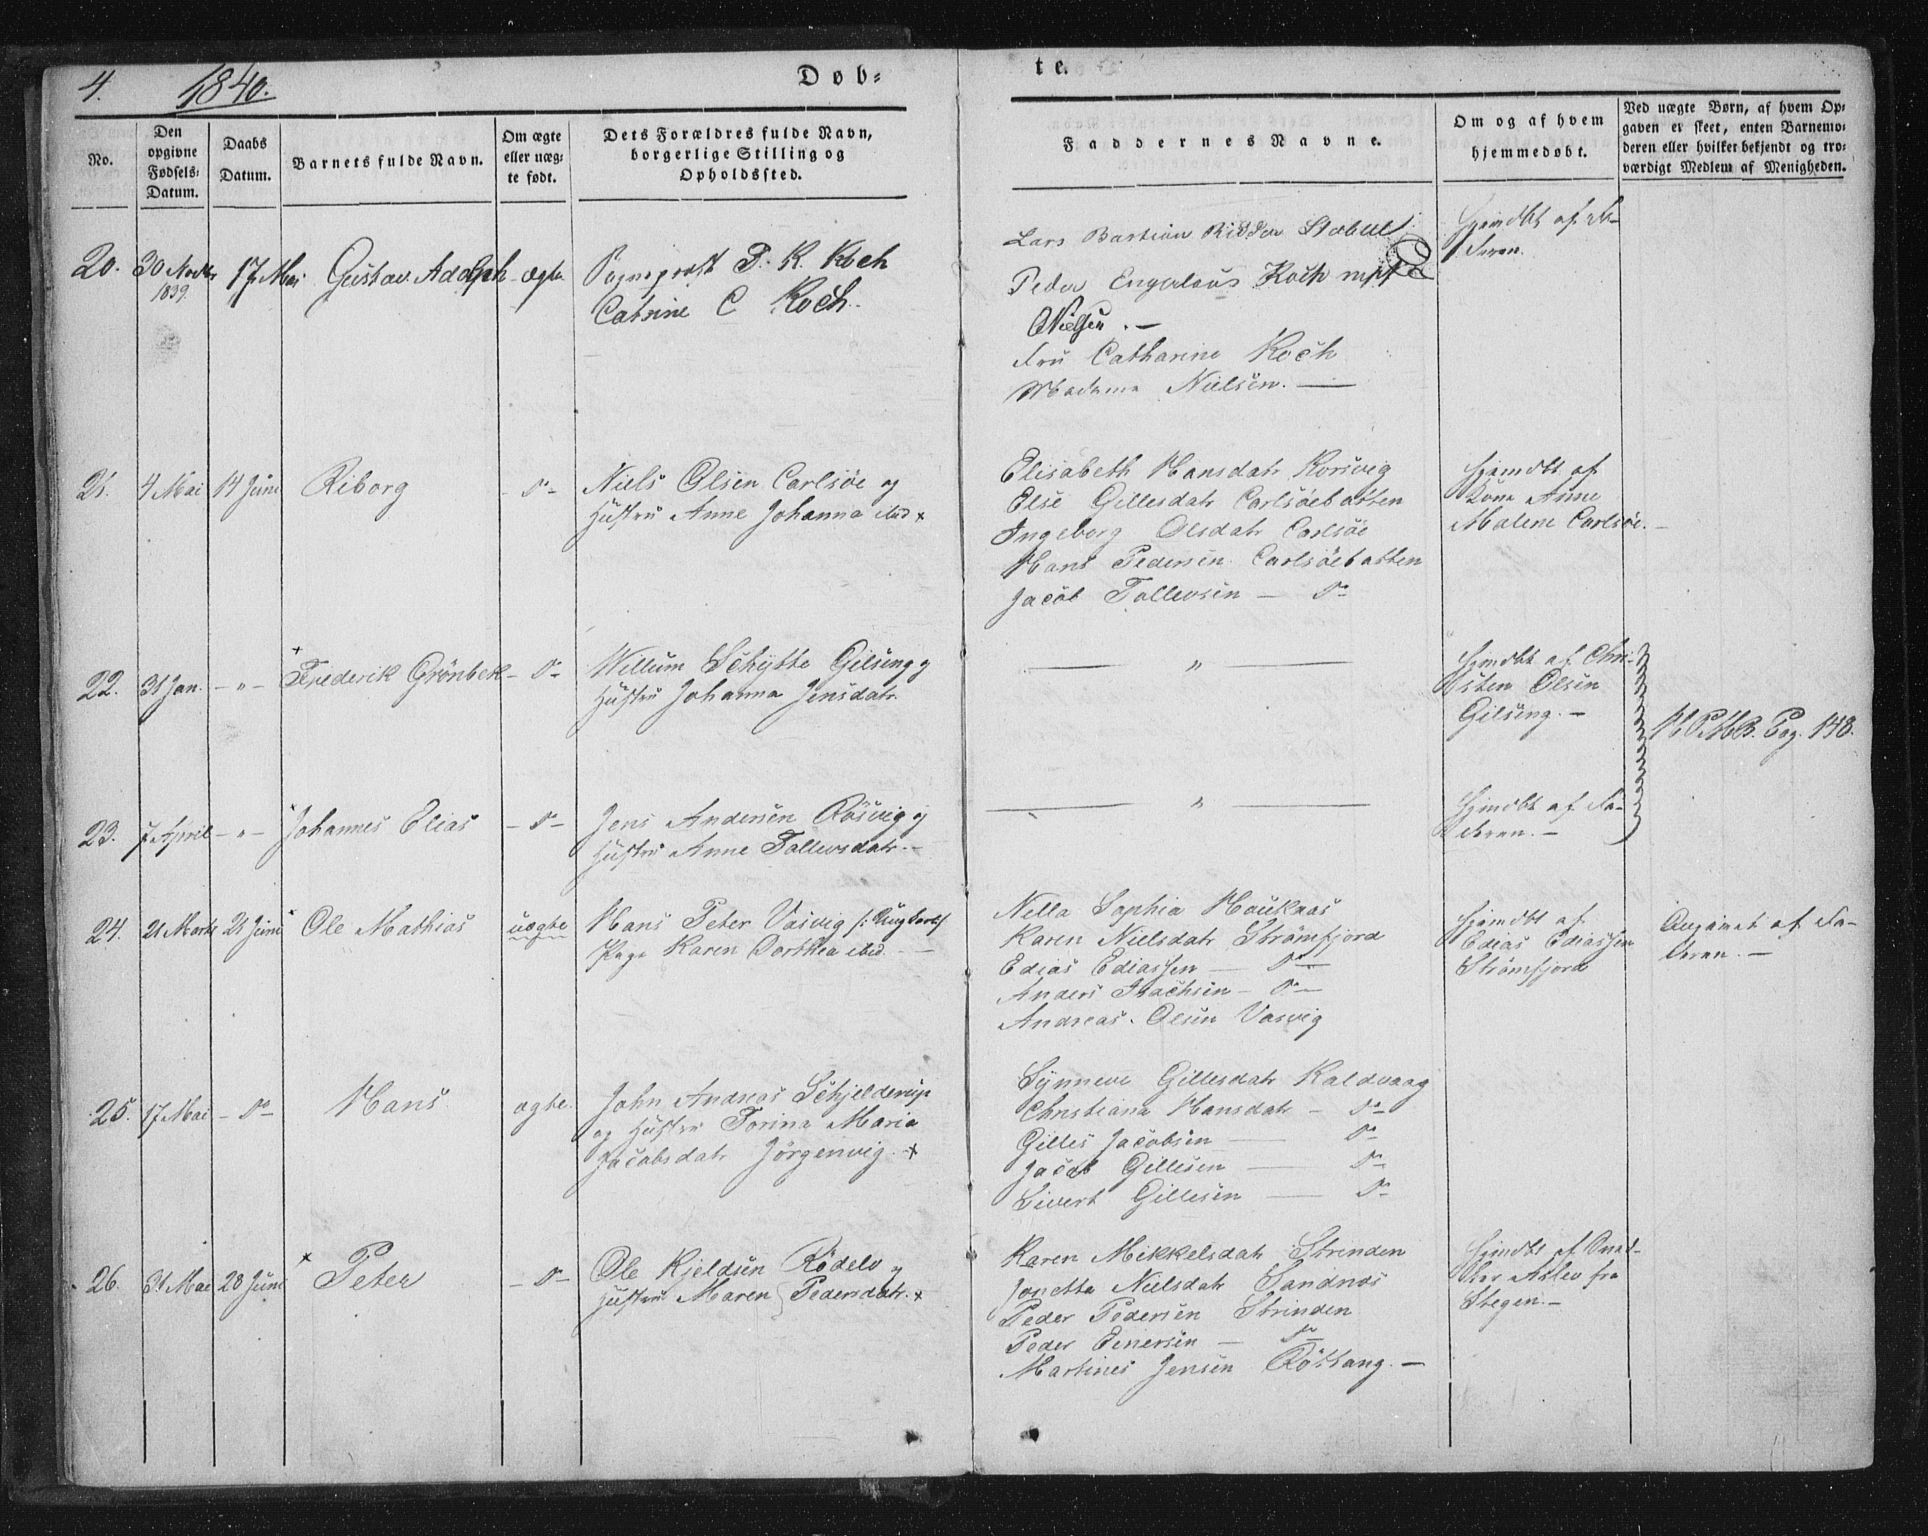 4.
1840.
Døb-
te.
No.
Den opgivne Fødsels-Datum.
Daabs Datum.
Barnets fulde Navn.
Om ægte eller uægte født.
Dets Forældres fulde Navn, borgerlige Stilling og Opholdssted.
Faddernes Navne.
Om og af hvem hjemmedøbt.
Ved uægte Børn, af hvem Opgaven er skeet, enten Barnemoderen eller hvilket bekjendt og troværdigt Medlem af Menigheden.
20. 30 Novbr 1839. 17 Mai Gustav Adolph ægte
Sogneprest P. K. Koch
Catrine C Koch.
Lars Bastian Ridder Stabel
Peder Engelaus Koch
Nielsen. —
Fru Catharine Koch
Madame Nielsen. —
Hjemdbt af Faderen.
21. 4 Mai 14 Juni Riborg - d° -
Niels Olsen Carlsöe og
Hustru Anne Johanna ibid +
Elisabeth Hansdatr Korsvig
Else Gillesdatr Carlsöebatten
Ingeborg Olsdatr Carlsöe
Hans Pedersen Carlsöebatten
Jacob Tollevsen — d°
Hjemdbt af
Kone Anne
Malene Carlsöe. —
22. 31 Jan. - " - Frederik Grönbek - d° -
Willum Schytte Gilseng og
Hustru Johanna Jensdatr.
— " —
Hjemdbt af Chri-
sten Olsen
Gilseng. —
Pag. 148.
23. 7 April - " - Johannes Elias - d° -
Jens Andersen Rösvig og
Hustru Anne Tollevsdatr. -
— " —
Hjemdbt af Fa-
deren. —
24. 21 Marts 21 Juni Ole Mathias uægte
Hans Peter Vasvig /: Ungkarl :/
Pige Karen Dorthea ibid. —
Nella Sophia Houkaas
Karen Nielsdatr Strömfjord
Edias Ediassen — d° —
Anders Isachsen - d° —
Andreas Olsen Vasvig
Hjemdbt af
Edias Ediassen
Strömfjord
Angivet af Fa-
deren. —
25. 17 Mai - d° Hans ægte.
John Andreas Schjelderup
og Hustru Torina Maria
Jacobsdatr Jörgenvig. +
Synneve Gillesdatr Kaldvaag
Christiana Hansdatr - d° -
Gilles Jacobsen — d° -
Jacob Gillesen — d° -
Sivert Gillesen — d° -
26. 31 Mai 28 Juni Peter - d° -
Ole Kjeldsen Rödelv og
Hustru Maren Pedersdatr. +
Karen Mikkelsdatr Strinden
Jonetta Nielsdatr Sandnæs
Peder Pedersen Strinden
Peder Einersen — d°
Martines Jensen Röttang. —
Hjemdbt af
Aslev fra
Stegen. —